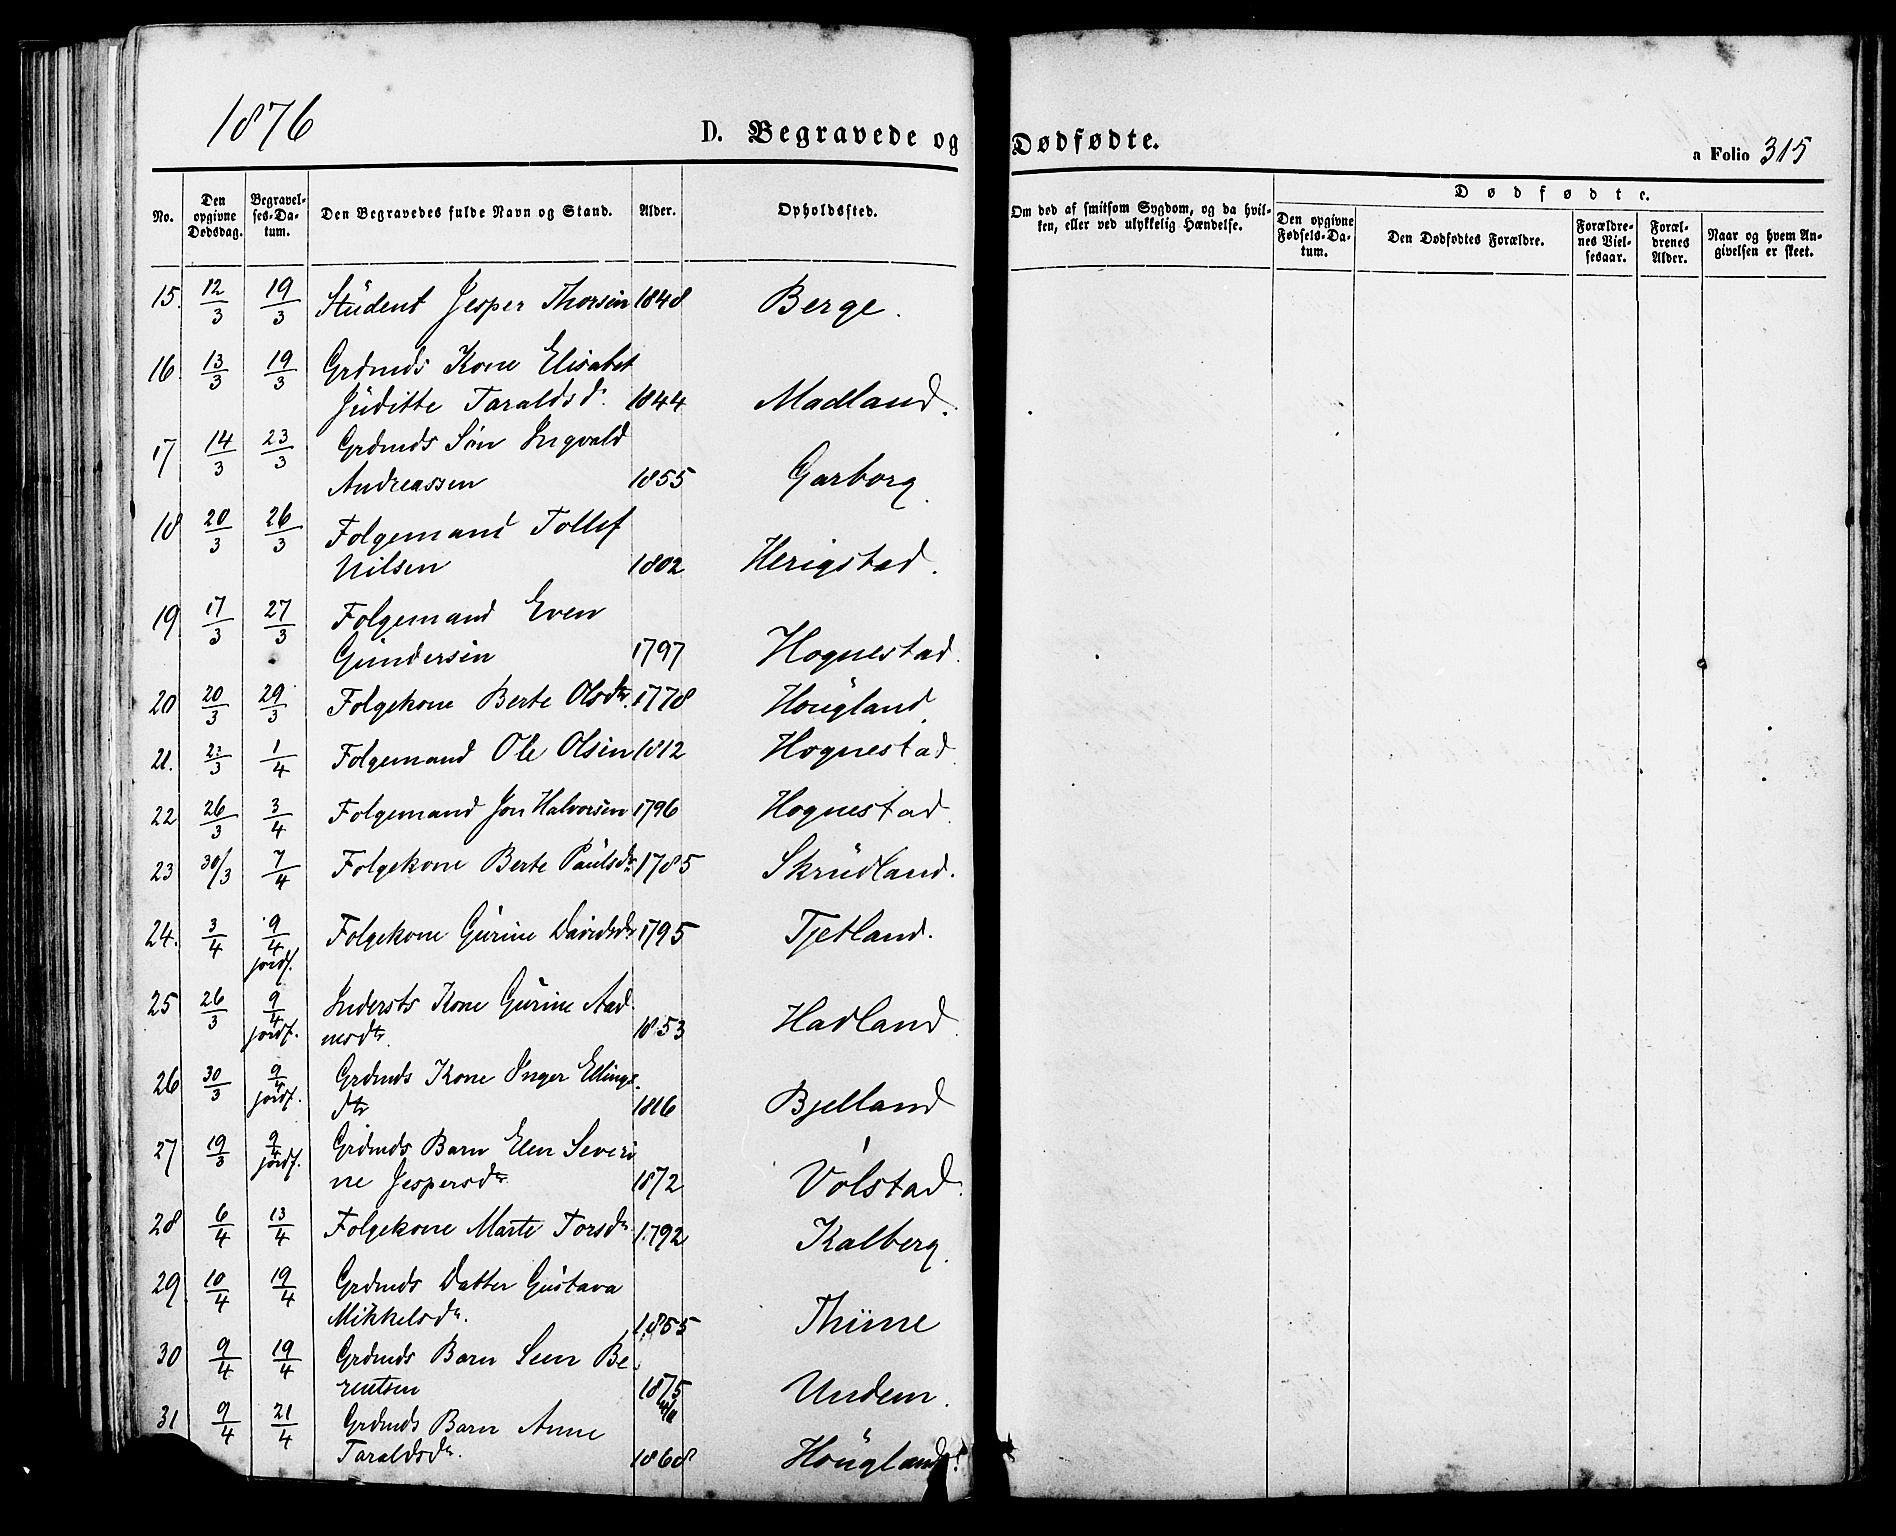 1876
D. Begravede og Dødfødte.
a Folio 315
No. Den opgivne Dødsdag. Begravelses-Datum. Den Begravedes fulde Navn og Stand. Alder. Opholdssted. Om død af smitsom Sygdom, og da hvilken, eller ved ulykkelig Hændelse.
Dødfødte.
Den opgivne Fødsels-Datum. Den Dødfødtes Forældre. Forældrenes Vielsesaar. Forældrenes Alder. Naar og hvem Angivelsen er skeet.
15. 12/3 19/3 Student Jesper Thorsen 1848 Berge.
16. 13/3 19/3 Grdmds Kone Elisabet
Juditte Taraldsd. 1844 Madland.
17 14/3 23/3 Grdmds Søn Ingvald
Andreassen 1855 Garborg
18 20/3 26/3 Folgemand Tollef
Nilsen 1802 Herigstad.
19 17/3 27/3 Folgemand Even
Gundersen 1797 Hognestad.
20 20/3 29/3 Folgekone Berte Olsdtr. 1778 Hougland
21. 23/3 1/4 Folgemand Ole Olsen 1812 Hognestad
22 26/3 3/4 Folgemand Jon Halvorsen 1796 Hognestad
23 30/3 7/4 Folgekone Berte Paulsdr. 1785 Skrudland.
24. 3/4 9/4 jordf. Folgekone Gurine Davidsdr 1795 Tjetland.
25 26/3 9/4 jordf. Indersts Kone Gurine Aad
nesdtr. 1853 Hadland
26 30/3 9/4 jordf. Grdmds Kone Inger Ellings
dtr 1816 Bjelland
27 19/3 9/4 jordf. Grdmds Barn Elen Severi
ne Jespersdtr 1872 Vølstad.
28 6/4 13/4 Folgekone Marte Torsdr 1792 Kalberg
29 10/4 19/4 Grdmds Datter Gustava
Mikkelsdr. 1855 Thime
30 9/4 19/4 Grdmds Barn Seen Be
rentsen 1875 Undem.
31 9/4 21/4 Grdmds Barn Anne
Taraldsdr. 1868 Hougland.